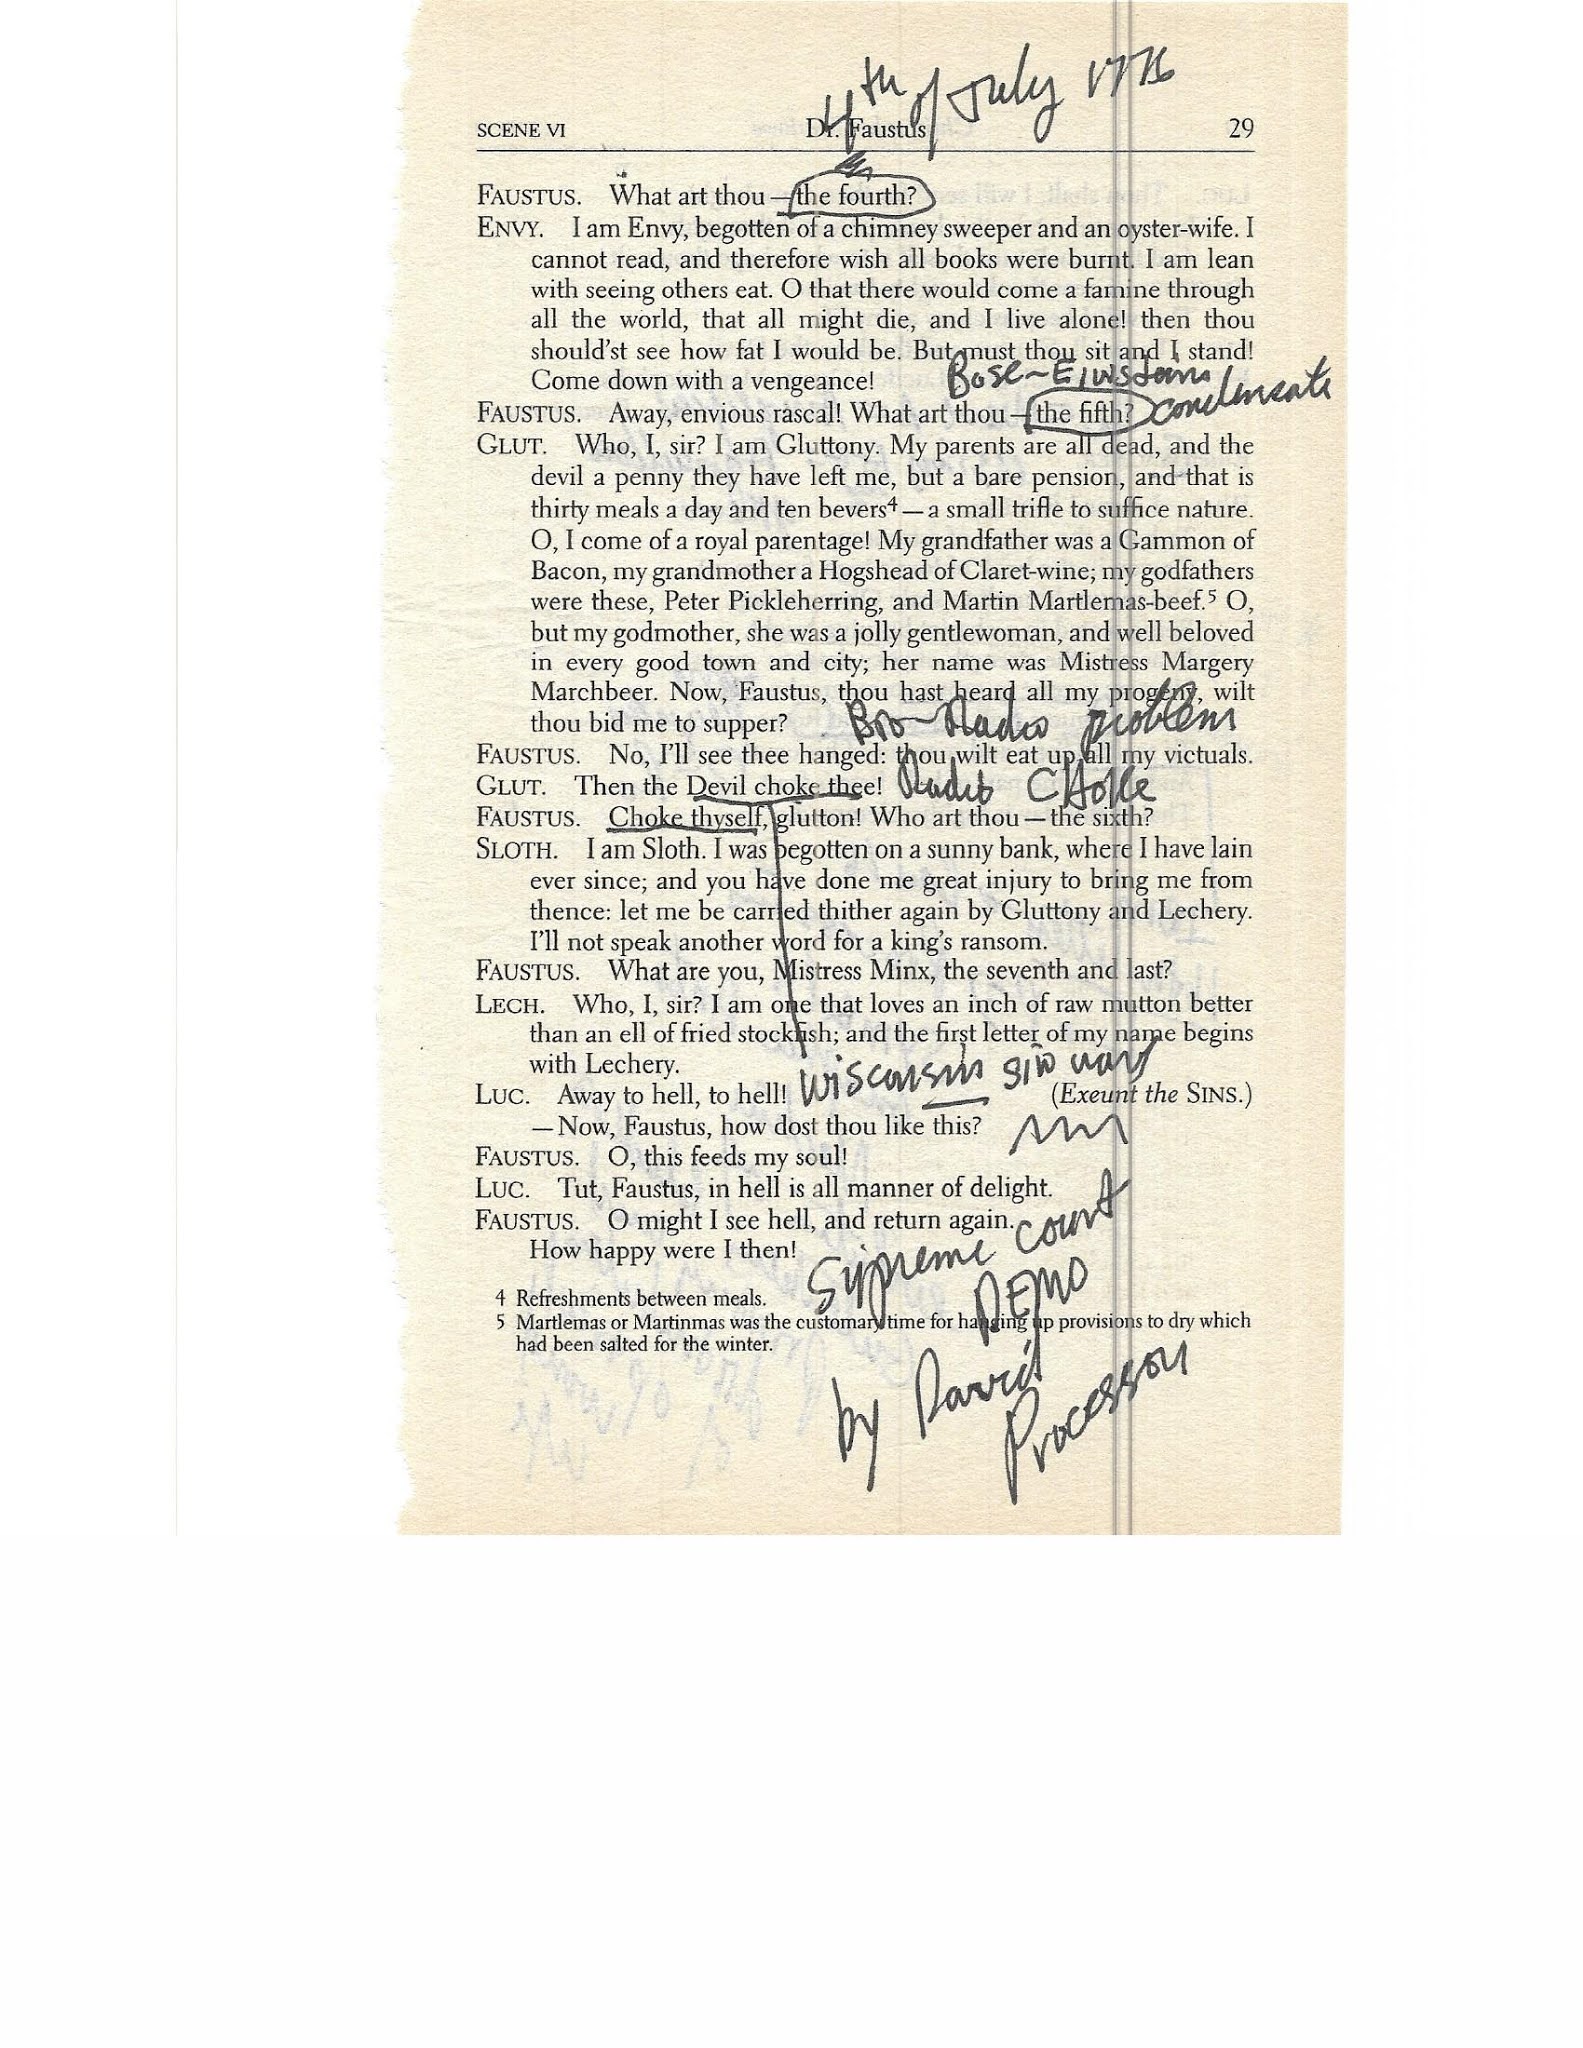 4th of July 1776
SCENE VI Dr. Faustus 29
FAUSTUS. What art thou—the fourth?
ENVY. I am Envy, begotten of a chimney sweeper and an oyster-wife. I
cannot read, and therefore wish all books were burnt. I am lean
with seeing others eat. O that there would come a famine through
all the world, that all might die, and I live alone! then thou
should'st see how fat I would be. But must thou sit and I stand!
Come down with a vengeance! Bose-Einstein
FAUSTUS. Away, envious rascal! What art thou—the fifth? condensate
GLUT. Who, I, sir? I am Gluttony. My parents are all dead, and the
devil a penny they have left me, but a bare pension, and that is
thirty meals a day and ten bevers⁴—a small trifle to suffice nature.
O, I come of a royal parentage! My grandfather was a Gammon of
Bacon, my grandmother a Hogshead of Claret-wine; my godfathers
were these, Peter Pickleherring, and Martin Martlemas-beef.⁵ O,
but my godmother, she was a jolly gentlewoman, and well beloved
in every good town and city; her name was Mistress Margery
Marchbeer. Now, Faustus, thou hast heard all my progeny, wilt
thou bid me to supper? Radio problem
FAUSTUS. No, I'll see thee hanged: thou wilt eat up all my victuals.
GLUT. Then the Devil choke thee! Radio CHOKE
FAUSTUS. Choke thyself, glutton! Who art thou—the sixth?
SLOTH. I am Sloth. I was begotten on a sunny bank, where I have lain
ever since; and you have done me great injury to bring me from
thence: let me be carried thither again by Gluttony and Lechery.
I'll not speak another word for a king's ransom.
FAUSTUS. What are you, Mistress Minx, the seventh and last?
LECH. Who, I, sir? I am one that loves an inch of raw mutton better
than an ell of fried stockfish; and the first letter of my name begins
with Lechery.
LUC. Away to hell, to hell! Wisconsin (Exeunt the SINS.)
—Now, Faustus, how dost thou like this?
FAUSTUS. O, this feeds my soul!
LUC. Tut, Faustus, in hell is all manner of delight.
FAUSTUS. O might I see hell, and return again.
How happy were I then!
Supreme court
4 Refreshments between meals.
5 Martlemas or Martinmas was the customary time for hanging up provisions to dry which
had been salted for the winter.
by David
Processor